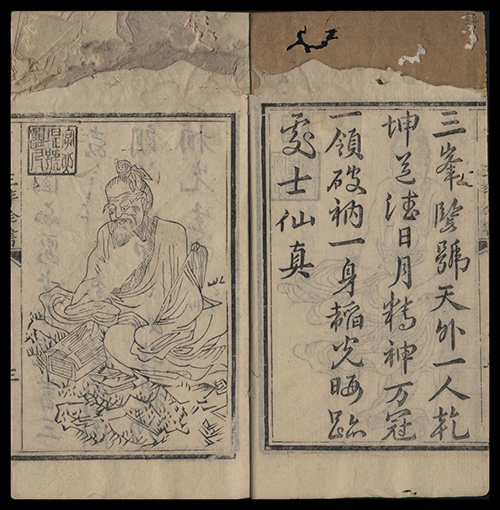 三峯隱號天外一人乾
坤道德日月精神万冠
一領破衲一身韜光晦跡
處士仙真